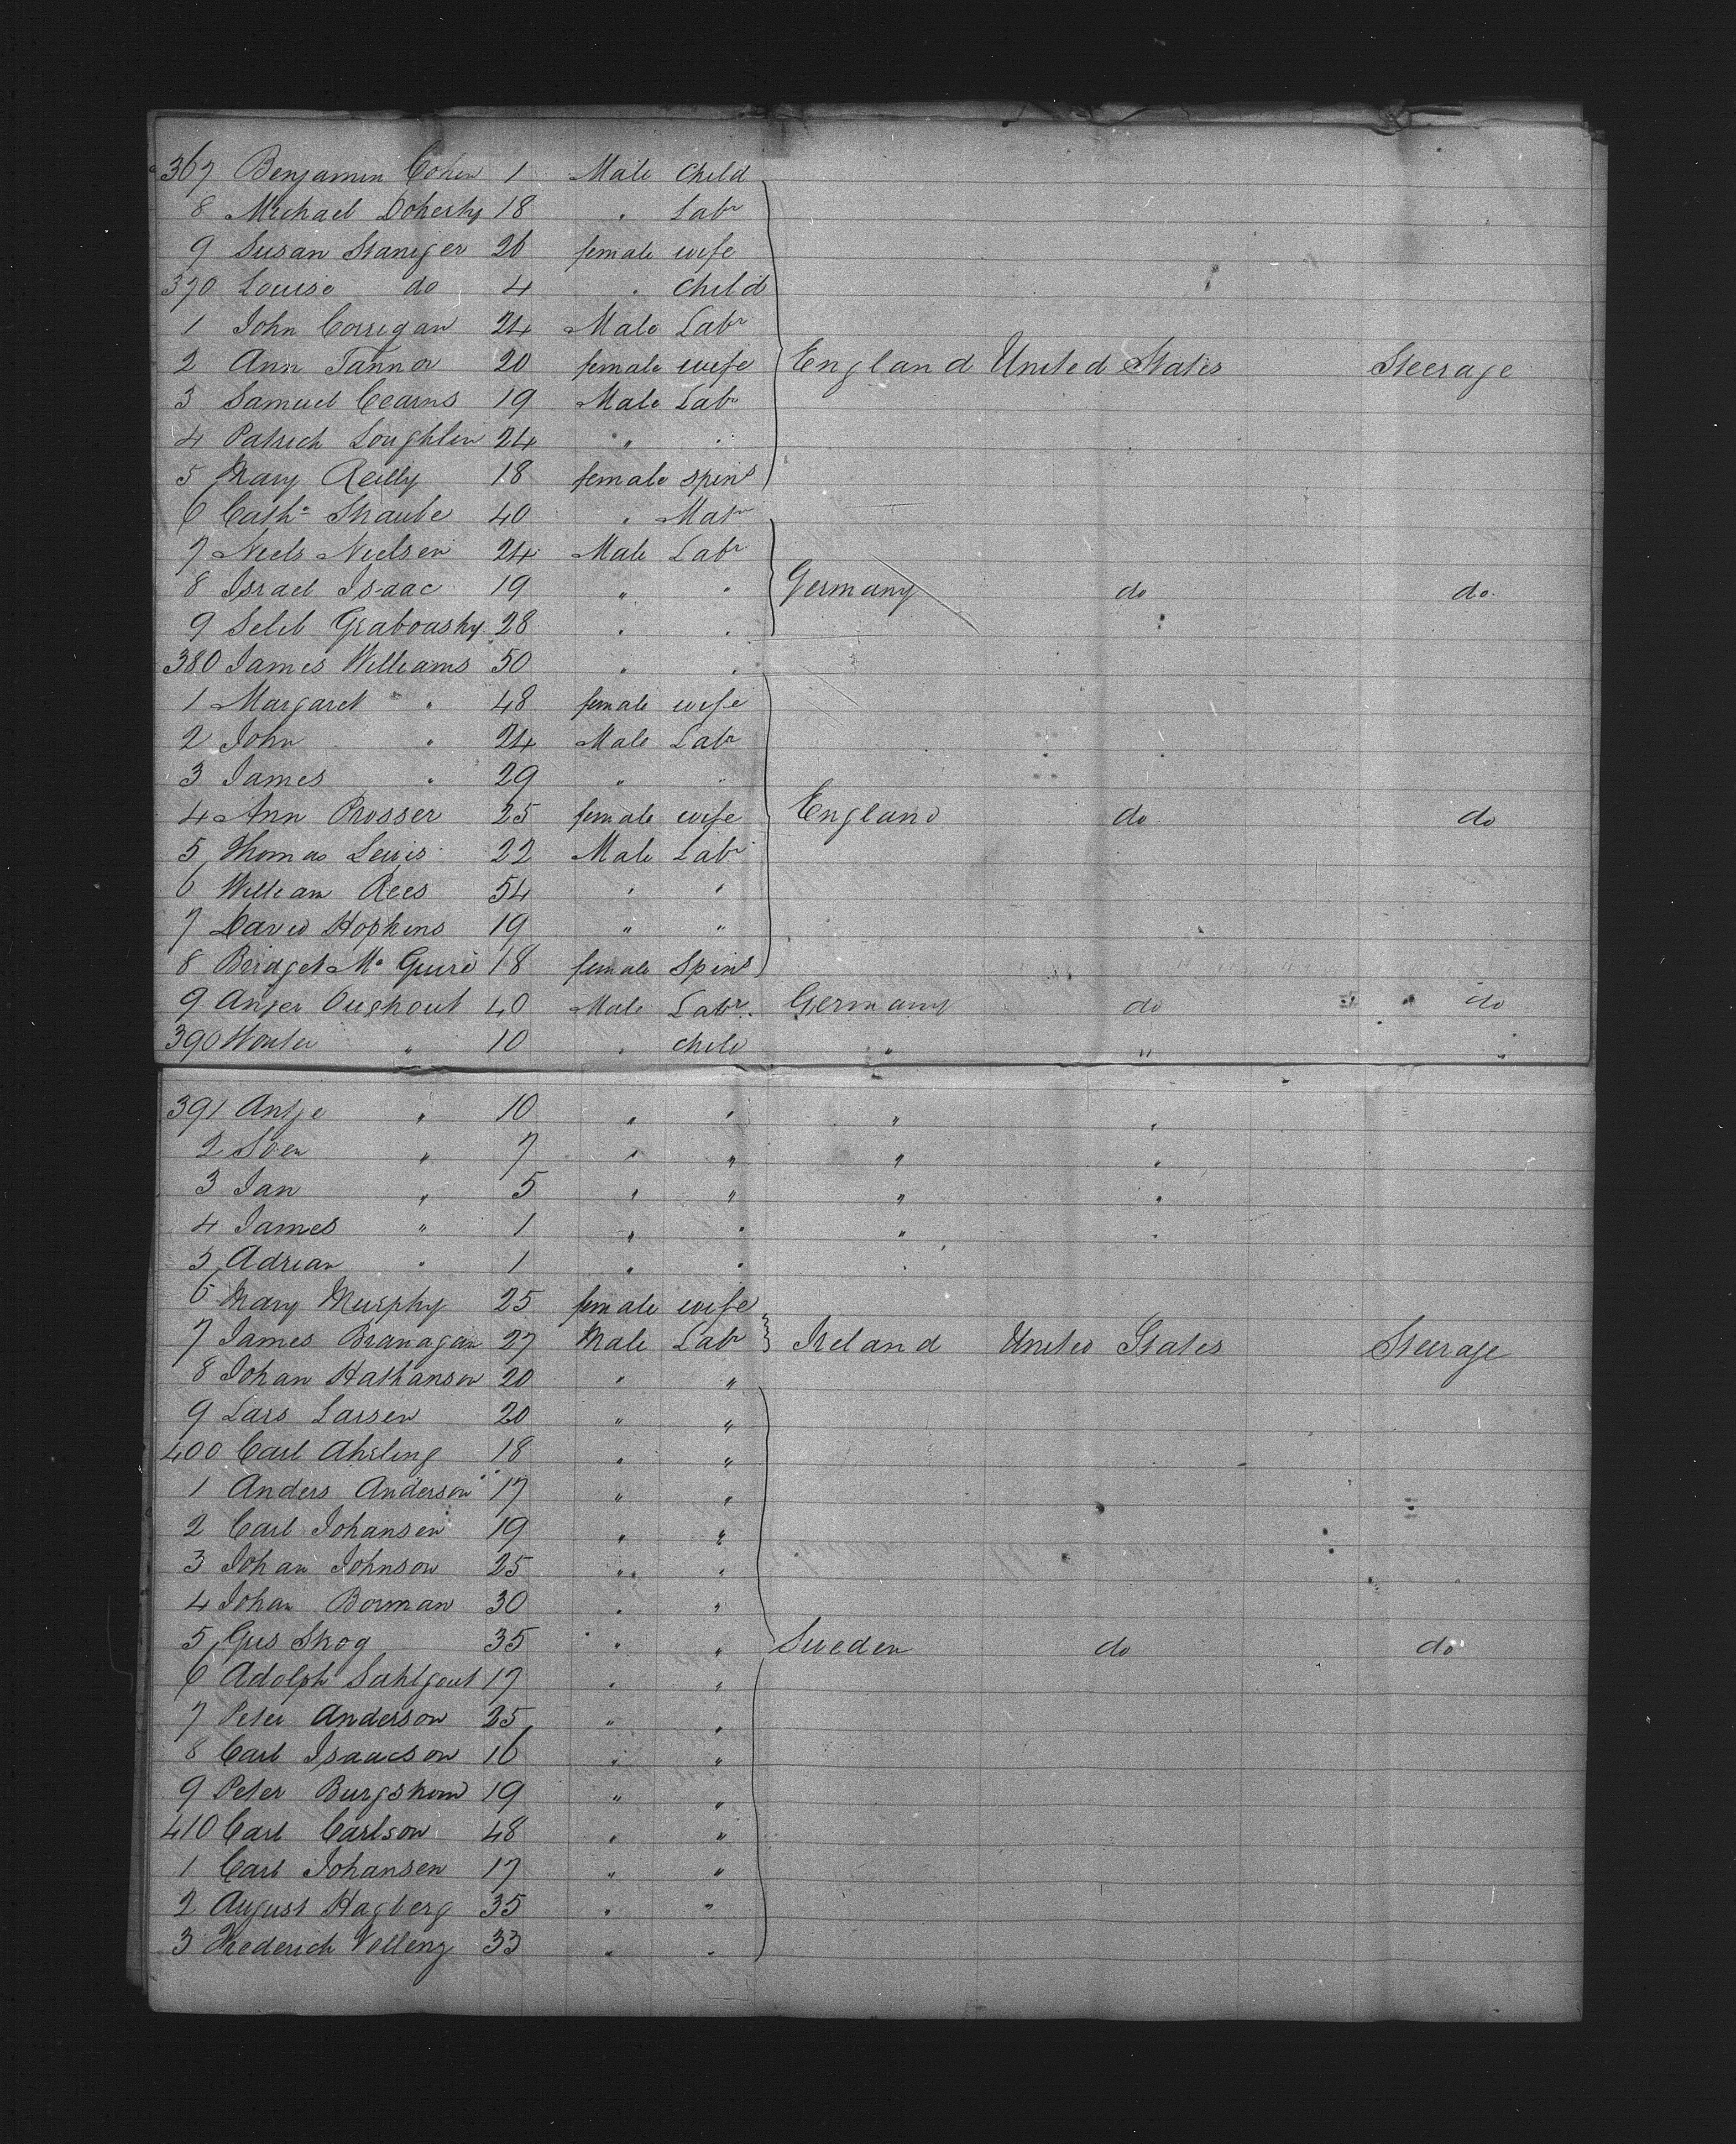 367 Benjamin Cohen 1 Male Child
8 Michael Doherty 18 " Labr
9 Susan Staniger 26 female wife
370 Louise do 4 " Child
1 John Corrigan 24 Male Labr
2 Ann Tannor 20 female wife England United States Steerage
3 Samuel Cearns 19 Male Labr
4 Patrick Loughlin 24 " "
5 Mary Reilly 18 female spinr
6 Cathe Straube 40 " Matr
7 Niels Nielsen 24 Male Labr
8 Israel Isaac 19 " " Germany do do
9 Selib Grabousky 28 " "
380 James Williams 50 " "
1 Margaret " 48 female wife
2 John " 24 Male Labr
3 James " 29 " "
4 Ann Prosser 25 female wife England do do
5 Thomas Lewis 22 Male Labr
6 William Rees 54 " "
7 David Hopkins 19 " "
8 Bridget Mc Guire 18 female Spinr
9 40 Male Labr Germany do do
390 Wouter " 10 " child " " "
391 Antje " 10 " " " "
2 " 7 " " " "
3 Jan " 5 " " " "
4 James " 1 " " " "
5 Adrian " 1 " " "
6 Mary Murphy 25 female wife
7 James Branagan 27 Male Labr Ireland United States Steerage
8 Johan Hathanson 20 " "
9 Lars Larsen 20 " "
400 Carl Ahrling 18 " "
1 Anders Anderson 17 " "
2 Carl Johansen 19 " "
3 Johan Johnson 25 " "
4 Johan Borman 30 " "
5 Gus Skog 35 " " Sweden do do
6 Adolph 17 " "
7 Peter Anderson 25 " "
8 Carl Isaacson 16 " "
9 Peter Burgstrom 19 " "
410 Carl Carlson 48 " "
1 Carl Johansen 17 " "
2 August Hagberg 35 " "
3 Frederich 33 " "